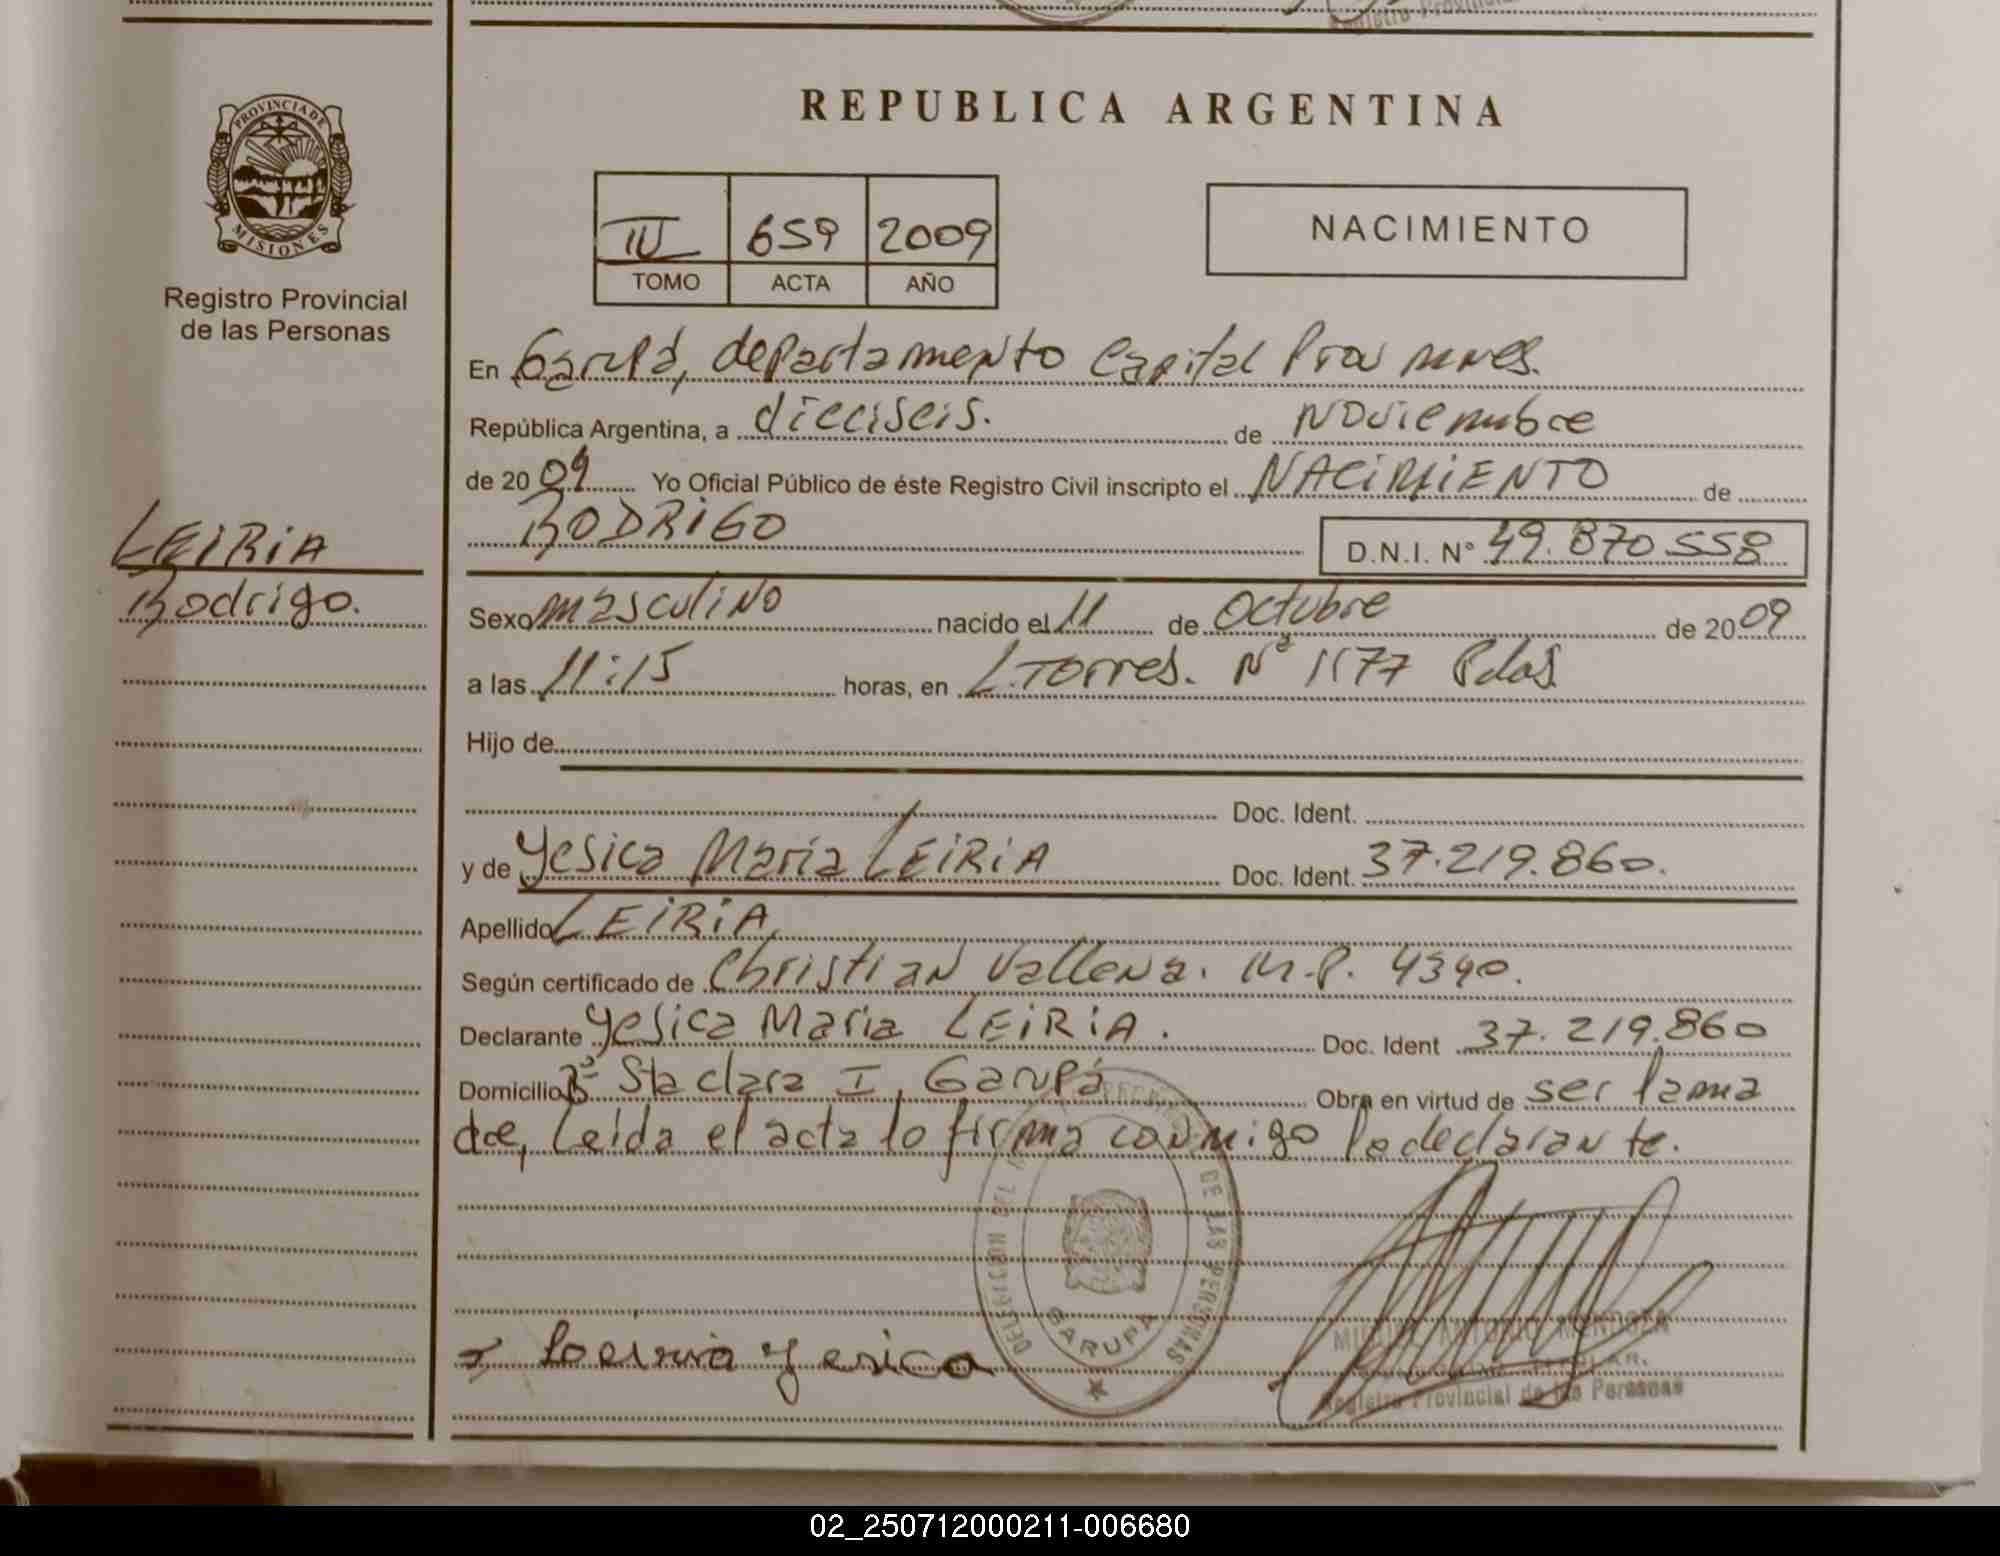 Registro Provincial
PROVINCIA DE
MISIONES
Registro Provincial
de las Personas
LEIRIA
Rodrigo.
REPUBLICA ARGENTINA
III 659 2009
TOMO ACTA AÑO
NACIMIENTO
En Garupá, departamento Capital Prov
República Argentina, a dieciseis. de Noviembre
de 2009 Yo Oficial Público de éste Registro Civil inscripto el NACIMIENTO de
RODRIGO D.N.I. N° 49.870.558
Sexo masculino nacido el 11 de Octubre de 2009
a las 11:15 horas, en L.Torres. N° 1177 Pdas
Hijo de
Doc. Ident.
y de Yesica Maria LEIRIA Doc. Ident. 37.219.860.
Apellido LEIRIA
Según certificado de Christian Vallena. M.P. 4390.
Declarante Yesica Maria LEIRIA. Doc. Ident 37.219.860
Domicilio B° Sta clara I, Garupá Obra en virtud de ser la ma
dre, Leida el acta lo firma conmigo la declarante.
DE LAS PERSONAS
GARUPA
Leiria Yesica
MIGUEL ANTONIO MENDOZA
Registro Provincial de las Personas
02_250712000211-006680